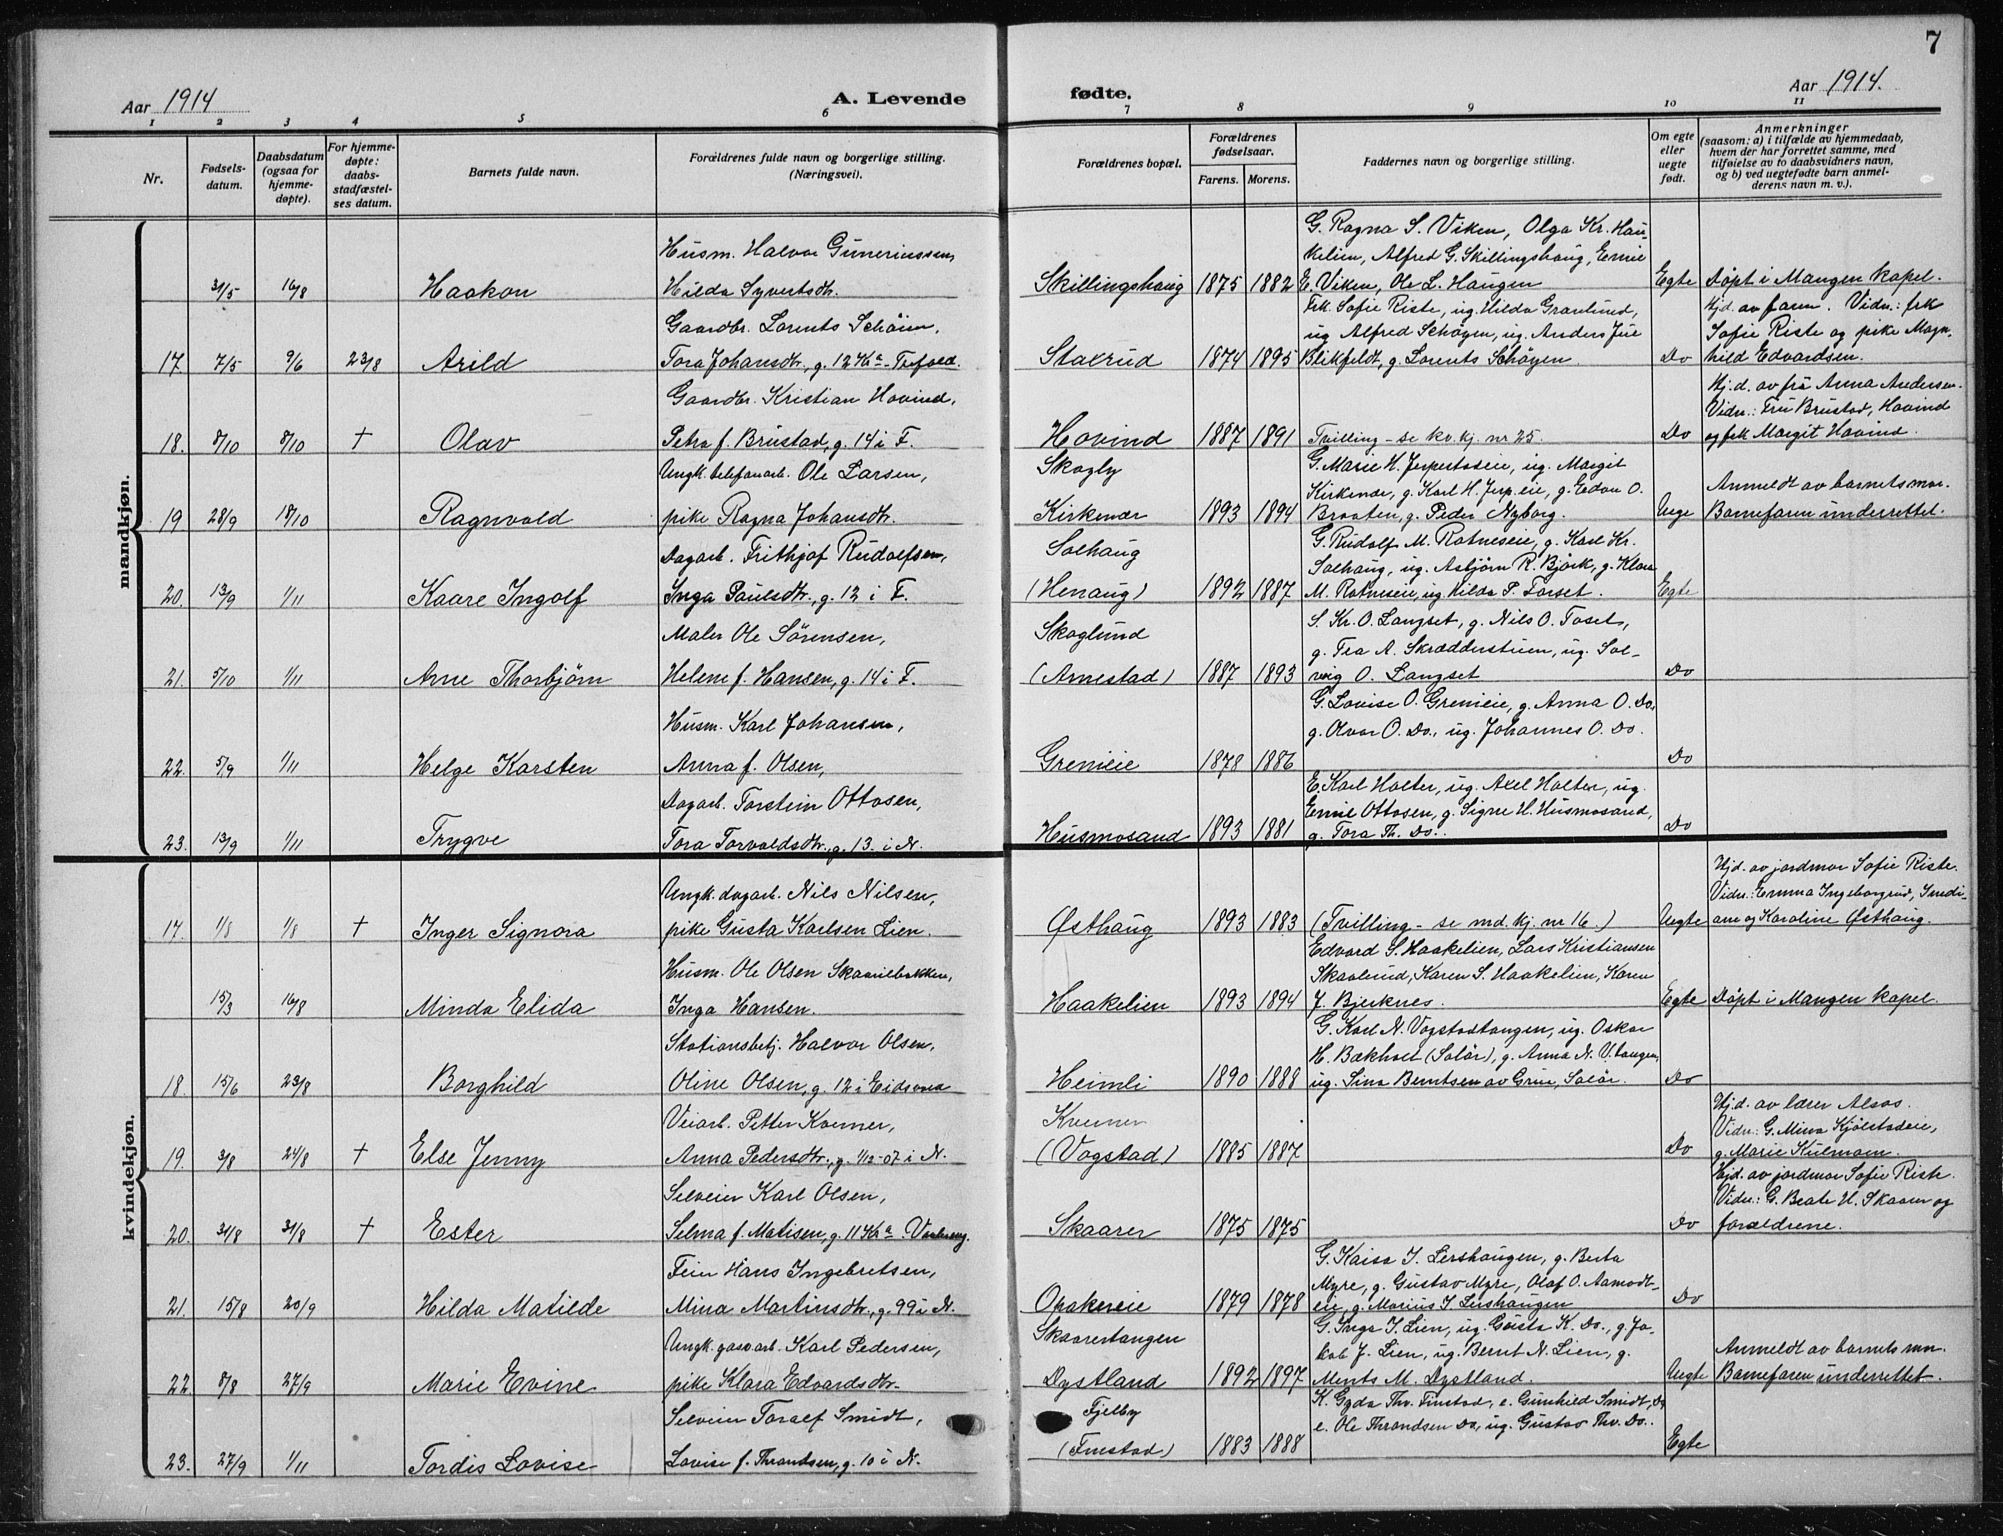 7
Aar 1914
A. Levende
fødte.
Aar 1914.
1 2 3 4 5 6 7 8 9 10 11
Nr.
Fødsels-
datum.
Daabsdatum
(ogsaa for
hjemme-
døpte).
For hjemme-
døpte:
daabs-
stadfæstel-
ses datum.
Barnets fulde navn.
Forældrenes fulde navn og borgerlige stilling.
(Næringsvei).
Forældrenes bopæl.
Forældrenes
fødselsaar.
Farens. Morens.
Faddernes navn og borgerlige stilling.
Om egte
eller
uegte
født.
Anmerkninger
(saasom: a) i tilfælde av hjemmedaab,
hvem der har forrettet samme, med
tilføielse av to daabsvidners navn,
og b) ved uegtefødte barn anmel-
derens navn m. v.).
mandkjøn.
31/5 16/8 Haakon
Husm. Halvor Gunneriussen,
Hilda Syvertsdtr.
Skillingshaug 1875 1882
G. Ragna S. Viken, Olga Kr. Hau-
kelien, Alfred G. Skillingshaug, Emil
E. Viken, Ole L. Haugen
Egte Døpt i Mangen kapel.
17. 7/5 9/6 23/8 Arild
Gaardbr. Lorents Schöien,
Tora Johansdtr., g. 12 Kra-Trefold.
Stalrud 1874 1895
Frk. Sofie Riste, ug. Hilda Granlund,
ug Alfred Schøyen, ug. Anders Jue
Blikfeldt, g. Lorents Schøyen
Do
Hjd. av farm. Vidn.: frk
Sofie Riste og pike Magn-
hild Edvardsen.
18. 8/10 8/10 † Olav
Gaardbr. Kristian Hovind,
Petra f. Brustad, g. 14 i F.
Hovind 1887 1891
Tvilling - se kv. kj. nr 25.
Do
Hj.d. av frk Anna Andersen.
Vidn.: Fru Brustad, Hovind
og frk Margit Hovind.
19 28/9 18/10 Ragnvald
Ungk. telefonarb. Ole Larsen,
pike Ragna Johansdtr.
Skogly
Kirkenær 1893 1894
G. Marie H. Jerpersetseie, ug. Margit
Kirkenær, g. Karl H. Jerp.eie, g. Edvn O.
Braaten, g. Peder Nyborg.
Uegte
Anmeldt av barnets mor.
Barnefaren underrettet.
20. 13/9 1/11 Kaare Ingolf
Dagarb. Frithjof Rudolfsen,
Inga Paulsdtr., g. 12 i F.
Solhaug
(Henaug) 1892 1887
G. Rudolf M. Ratneseie, g. Karl Kr.
Solhaug, ug. Asbjørn R. Bjørk, g. Klara
M. Ratneseie, ug. Hilda P. Torset.
Egte
21. 5/10 1/11 Arne Thorbjørn
Maler Ole Sørensen,
Helene f. Hansen, g. 14 i F.
Skoglund
(Arnestad) 1887 1893
S. Kr. O. Langset, g. Nils O. Toset,
g. Tea A. Skrædderstuen, ug. Sol-
veig O. Langset
Do
22. 5/9 1/11 Helge Karsten
Husm. Karl Johansen,
Anna f. Olsen,
Grenieie 1878 1886
G. Lovise O. Grenieie, g. Anna O. Do,
g. Olvar O. Do., ug. Johannes O. Do.
Do
23. 13/9 1/11 Trygve
Dagarb. Torstein Ottosen,
Tora Torvaldsdtr., g. 13. i N.
Husmosand 1893 1881
E. Karl Halter, ug. Axel Halter, ug.
Emil Ottosen, g. Signe H. Husmosand,
g. Tora Th. Do..
Do
kvindekjøn.
17. 1/8 1/8 † Inger Signora
Ungk. dagarb. Nils Nilsen,
pike Gusta Karlsen Lien.
Østhaug 1893 1883
(Tvilling - se md. kj. nr 16.)
Uegte
Hjd. av jordmor Sofie Riste.
Vidn.: Emma Ingeborgrud, Smedi-
arne og Karoline Østhaug.
15/3 16/8 Minda Elida
Husm. Ole Olsen Skaarnebakken,
Inga Hansen.
Haakelien 1893 1894
Edvard S. Haakelien, Lars Kristiansen
Skaalerud, Karen S. Haakelien, Karen
J. Bjerknes.
Egte Døpt i Mangen kapel.
18 15/6 23/8 Borghild
Stationsbetj. Halvor Olsen,
Oline Olsen, g. 12 i Eidsvold
Heimli 1890 1888
G. Karl N. Vogstadtangen, ug. Oskar
H. Bakhoel (Solør), g. Anna N. V.tangen,
ug. Sina Berntsen av Grue, Solør.
Do
19. 3/8 24/8 † Else Jenny
Veiarb. Petter Kverner,
Anna Pedersdtr., g. 1/12-07 i N.
Kverner
(Vogstad) 1885 1887
Do
Hjd. av lærer Alsos.
Vidn.: G. Mina Kjølstadeie,
g. Marie Kulmoen.
20. 31/8 31/8 † Ester
Selveier Karl Olsen,
Selma f. Matisen, g. 11 Kra Vaalereng.
Skaarer 1875 1875
Do
Hjd. av jordmor Sofie Riste.
Vidn.: G. Beate H. Skaarer og
forældrene.
21. 15/8 20/9 Hilda Matilde
Feier Hans Ingebretsen,
Mina Martinsdtr., g. 99 i N.
Opakereie 1879 1878
G. Kaisa I. Lershaugen, g. Berta
Myre, g. Gustav Myre, Olaf O. Aamodt-
eie, g. Marius I. Lershaugen
Do
22 8/8 27/9 Marie Evine
Ungk. gasarb. Karl Pedersen,
pike Klara Edvardsdtr.
Skaarestangen
Dystland 1892 1897
G. Inga J. Lien, ug. Gusta K. Do., g. Ja-
kob J. Lien, ug. Bernt N. Lien, g.
Ments M. Dystland.
Uegte
Anmeldt av barnets mor.
Barnefaren underrettet.
23. 27/9 1/11 Tordis Lovise
Selveier Toralf Smidt,
Lovise f. Thrandsen, g. 10 i N.
Fjelby
(Finstad) 1883 1888
K. Gyda Thv. Finstad, e. Gunhild Smidt, Do
e. Ole Thrandsen Do, ug. Gustav Thv. Do..
Egte